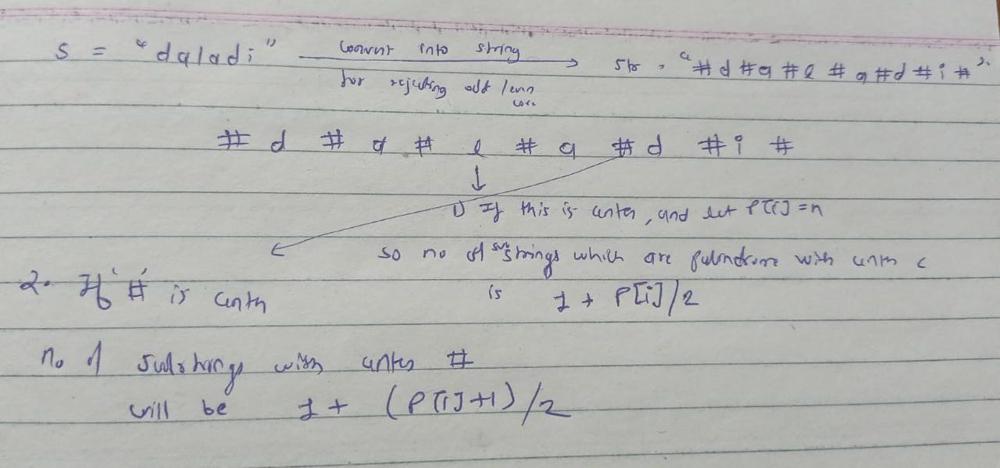 S = "daladi" convert into string for rejecting odd/even case → str = "#d#a#l#a#d#i#".
# d # a # l # a # d # i #
↓
1) If this is center, and let P[i]=n
so no of substrings which are palindrome with center c
is 1 + P[i]/2
2. If '#' is center
no of substrings with center #
will be 1 + (P[i]+1)/2